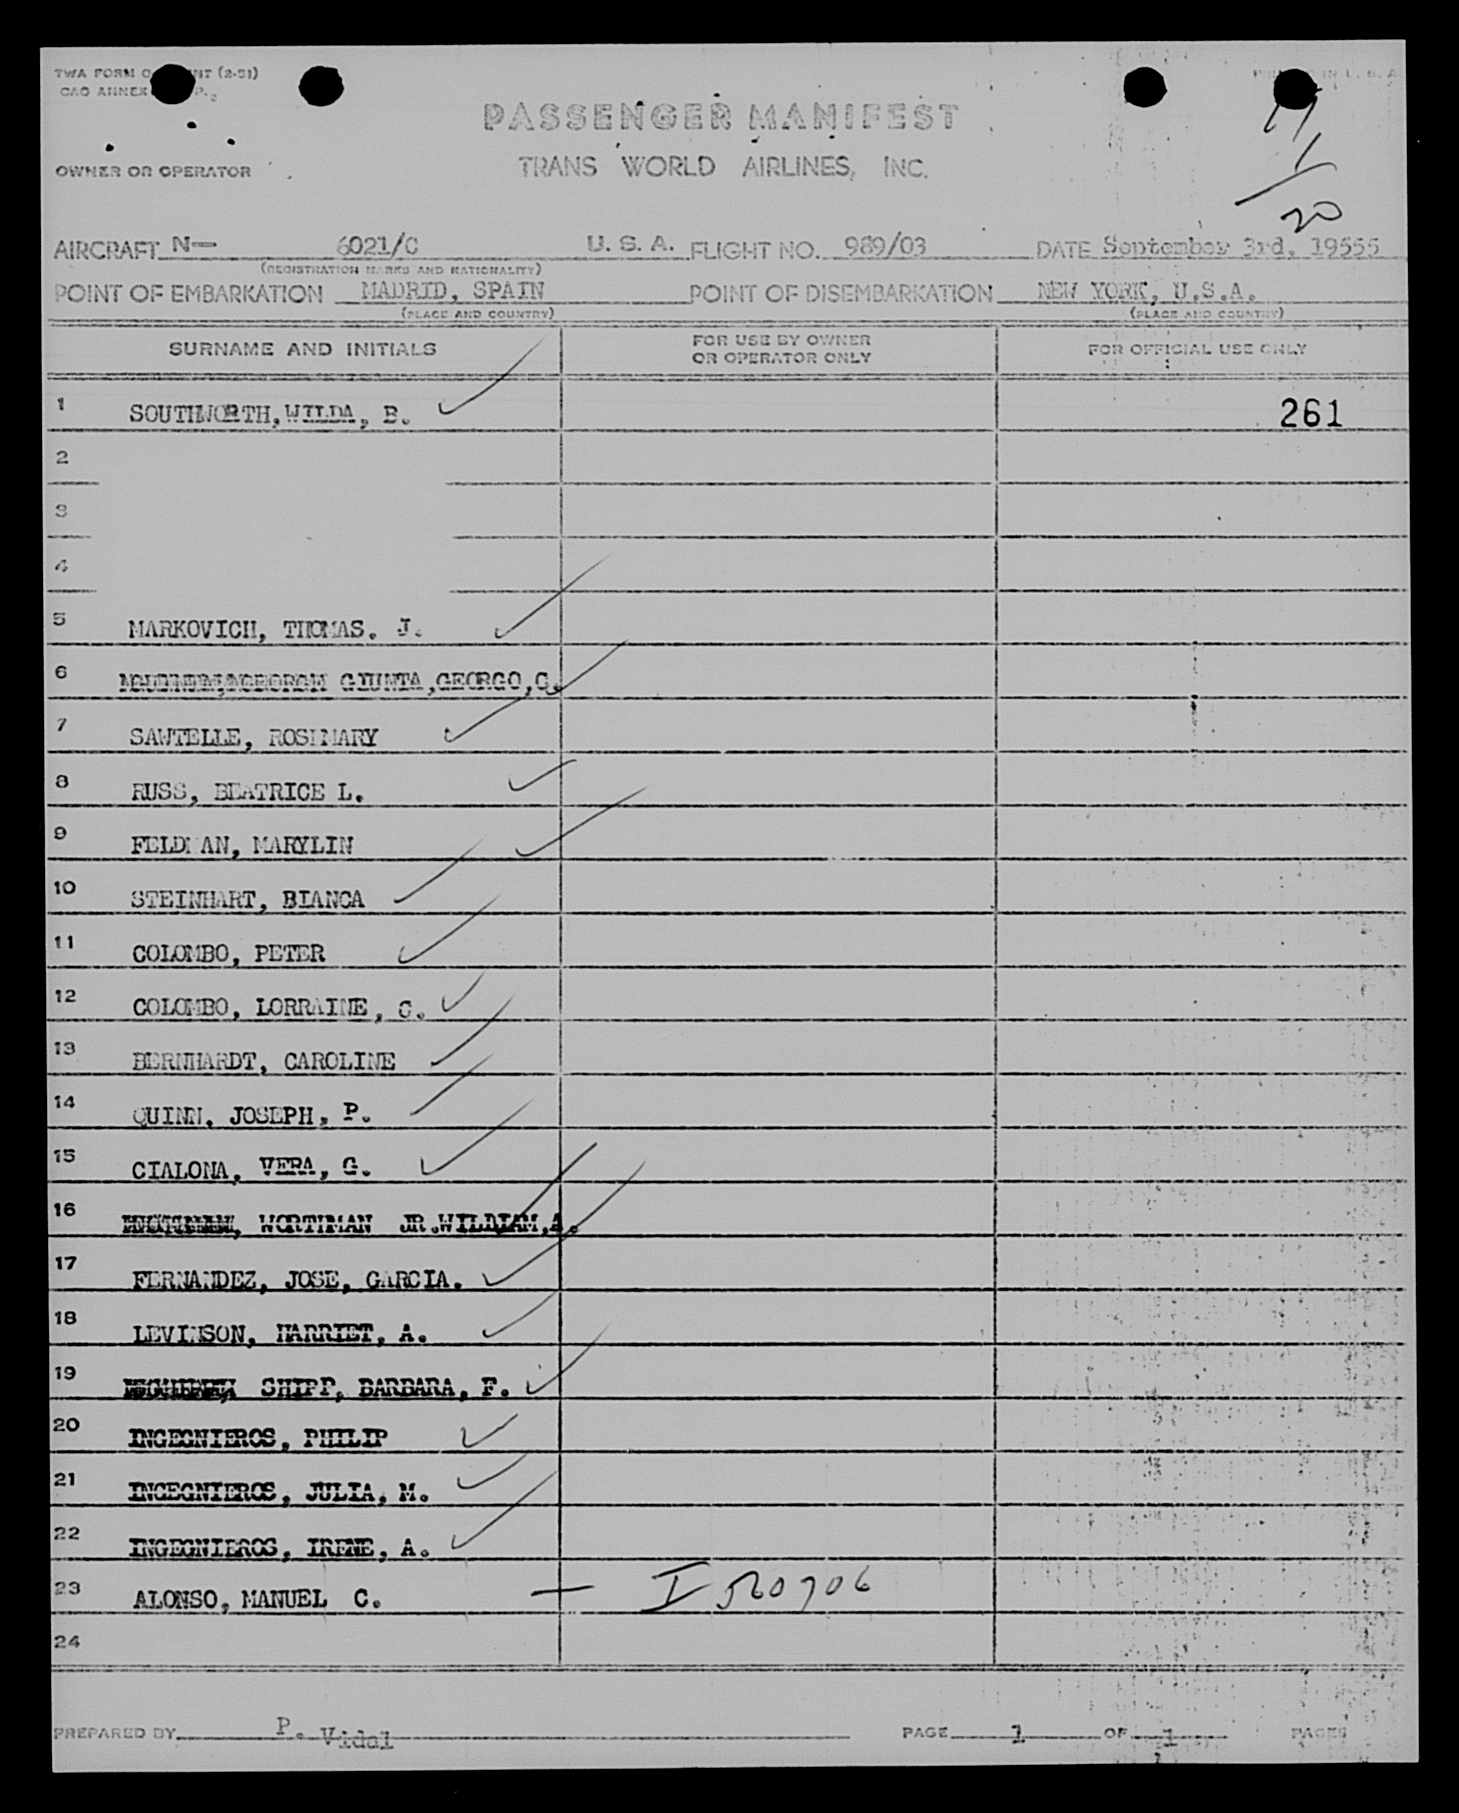 TWA FORM (2-51)
CAO ANNEX
PASSENGER MANIFEST
TRANS WORLD AIRLINES, INC.
OWNER OR OPERATOR
19
1
20
AIRCRAFT N— 6021/C U. S. A. FLIGHT NO. 989/03 DATE September 3rd, 19555
(REGISTRATION MARKS AND NATIONALITY)
POINT OF EMBARKATION MADRID, SPAIN POINT OF DISEMBARKATION NEW YORK, U.S.A.
(PLACE AND COUNTRY) (PLACE AND COUNTRY)
SURNAME AND INITIALS FOR USE BY OWNER OR OPERATOR ONLY FOR OFFICIAL USE ONLY
1 SOUTHWORTH, WILDA, B. 261
2
3
4
5 MARKOVICH, THOMAS. J.
6 GIUNTA, GEORGO, C.
7 SAWTELLE, ROSEMARY
8 RUSS, BEATRICE L.
9 FELDMAN, MARYLIN
10 STEINHART, BIANCA
11 COLOMBO, PETER
12 COLOMBO, LORRAINE, C.
13 BERNHARDT, CAROLINE
14 QUINN, JOSEPH, P.
15 CIALONA, VERA, G.
16 WORTHMAN JR.WILLIAM,A.
17 FERNANDEZ, JOSE, GARCIA.
18 LEVINSON, HARRIET, A.
19 SHIPP, BARBARA, F.
20 INGEGNIEROS, PHILIP
21 INGEGNIEROS, JULIA, M.
22 INGEGNIEROS, IRENE, A.
23 ALONSO, MANUEL C. — I 520706
24
PREPARED BY P. Vidal PAGE 1 OF 1 PAGES